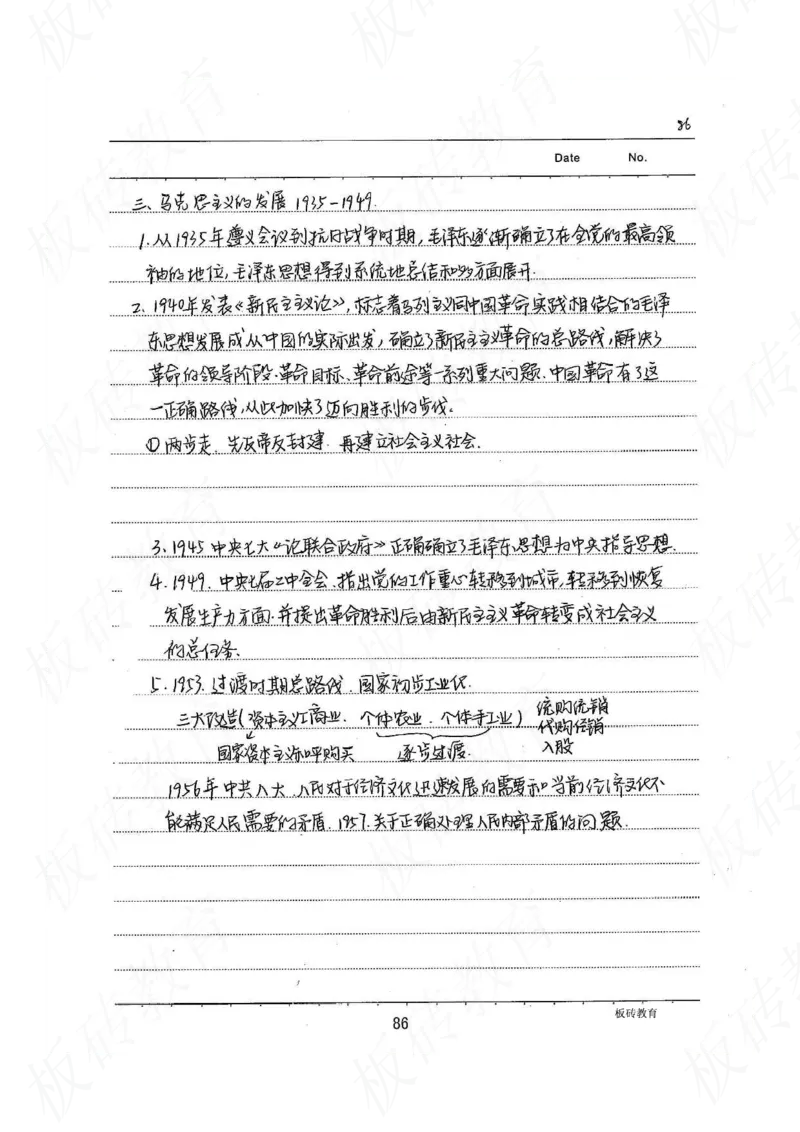 86
Date No.
三、马克思主义的发展 1935-1949.
1.从1935年遵义会议到抗日战争时期，毛泽东逐渐确立了在全党的最高领
袖的地位，毛泽东思想得到系统地总结和多方面展开.
2. 1940年发表《新民主主义论》，标志着马列主义同中国革命实践相结合的毛泽
东思想发展成从中国的实际出发，确立了新民主主义革命的总路线，解决了
革命的领导阶段、革命目标、革命前途等一系列重大问题.中国革命有了这
一正确路线，从此加快了迈向胜利的步伐。
①两步走、先反帝反封建.再建立社会主义社会.
3.1945中央七大《论联合政府》正确确立了毛泽东思想为中央指导思想.
4.1949.中央七届二中全会.指出党的工作重心转移到城市，转移到恢复
发展生产力方面.并提出革命胜利后由新民主主义革命转变成社会主义
的总任务.
5.1953.过渡时期总路线.国家初步工业化.
三大改造(资本主义工商业、个体农业、个体手工业) 统购统销
代购经销
国家资本主义和平购买 逐步过渡. 入股
1956年中共八大 人民对于经济文化迅速发展的需要和当前经济文化不
能满足人民需要的矛盾.1957.关于正确处理人民内部矛盾的问题.
86
板砖教育